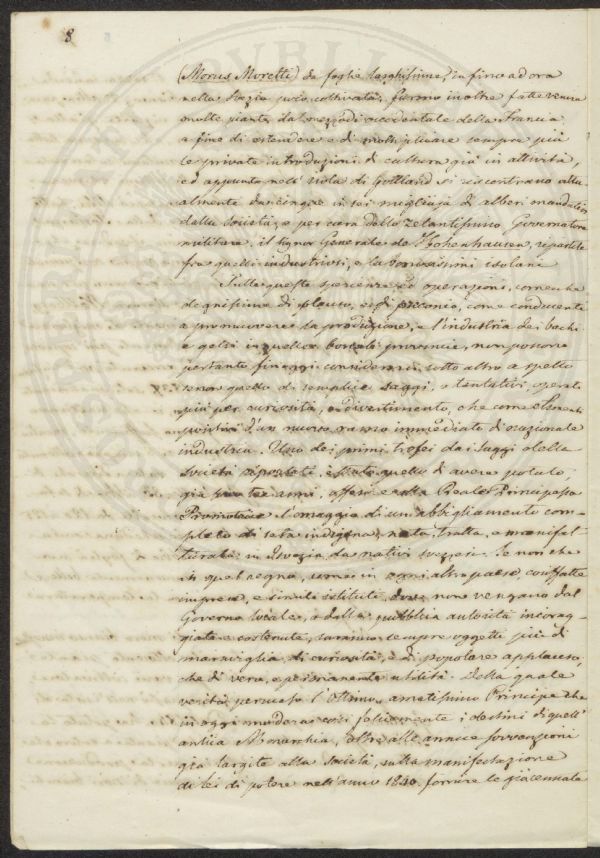 8.
(Morus Moretti) da foglie larghissime, in fino ad ora
nella Svezia poco coltivata; furono inoltre fatte venire
molte piante dal mezzodì occidentale della Francia
a fine di estendere e di moltiplicare sempre più
le private introduzioni di cultura già in attività,
ed appunto nell'isola di Gottland si riscontrano attu-
almente da cinque in sei migliaja di alberi mandativi
dalla Società, e per cura dello zelantissimo Governatore
militare il Signor Generale de Hohenhausen, repartite
fra quelli industriosi, e laboriosissimi isolani
Sulle queste sperienze ed operazioni, comecché
degnissime di plauso, e di preconio, come conducenti
a promuovere la produzione, e l'industria dei bachi
e gelsi in quelle boreali provincie, non possono
pertanto fin oggi considerarsi sotto altro aspetto
senon quello di semplici saggi, e tentativi, operati
più per curiosità, o divertimento, che come elementi
positivi d'un nuovo ramo immediato di nazionale
industria. Uno dei primi trofei dai saggi della
Società riportati è stato quello di avere potuto,
già son tre anni, offerire alla Reale Principessa
Promotrice l'omaggio di un abbigliamento com-
pleto di seta indigena, nata, tratta, e manifat-
turata in Isvezia da nativi svezzesi. Se non che
in quel regno, come in ogni altro paese, cosiffatte
imprese, e simili istituti, dove non vengano dal
Governo locale, o dalla pubblica autorità incorag-
giate e sostenute, saranno sempre oggetti più di
maraviglia, di curiosità, e di popolare applauso,
che di vera, e permanente utilità. Della quale
verità persuaso l'Ottimo, amatissimo Principe che
in oggi modera così felicemente i destini di quell'
antica Monarchia, oltre alle annue sovvenzioni
già largite alla Società, sulla manifestazione
di lei di potere nell'anno 1840. fornire le giacenziale